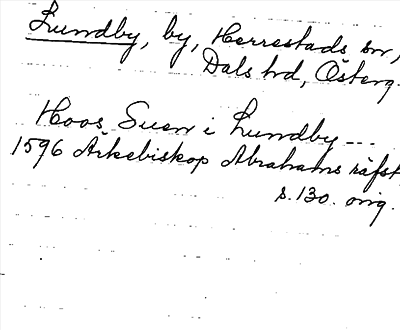 Lundby, by, Herrestads sn,
Dals hd, Österg.
Hoos Suen i Lundby ---
1596 Ärkebiskop Abrahams räfst
s. 130. orig.